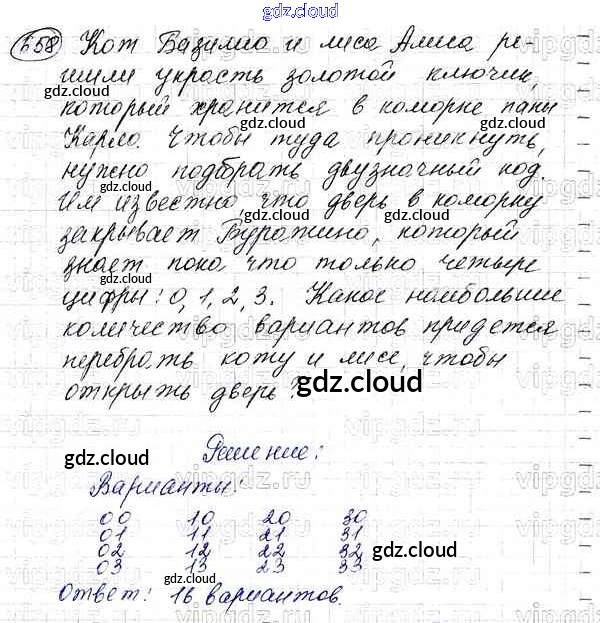 gdz.cloud
658 Кот Базилио и лиса Алиса ре-
шили украсть золотой ключик,
который хранится в коморке папы
Карло. Чтобы туда проникнуть,
нужно подбрать двузначный код.
Им известно, что дверь в коморку
закрывает Буратино, который
знает пока что только четыре
цифры: 0, 1, 2, 3. Какое наибольшее
количество вариантов придется
перебрать коту и лисе, чтобы
открыть дверь?
Решение:
Варианты:
00 10 20 30
01 11 21 31
02 12 22 32
03 13 23 33
Ответ: 16 вариантов.